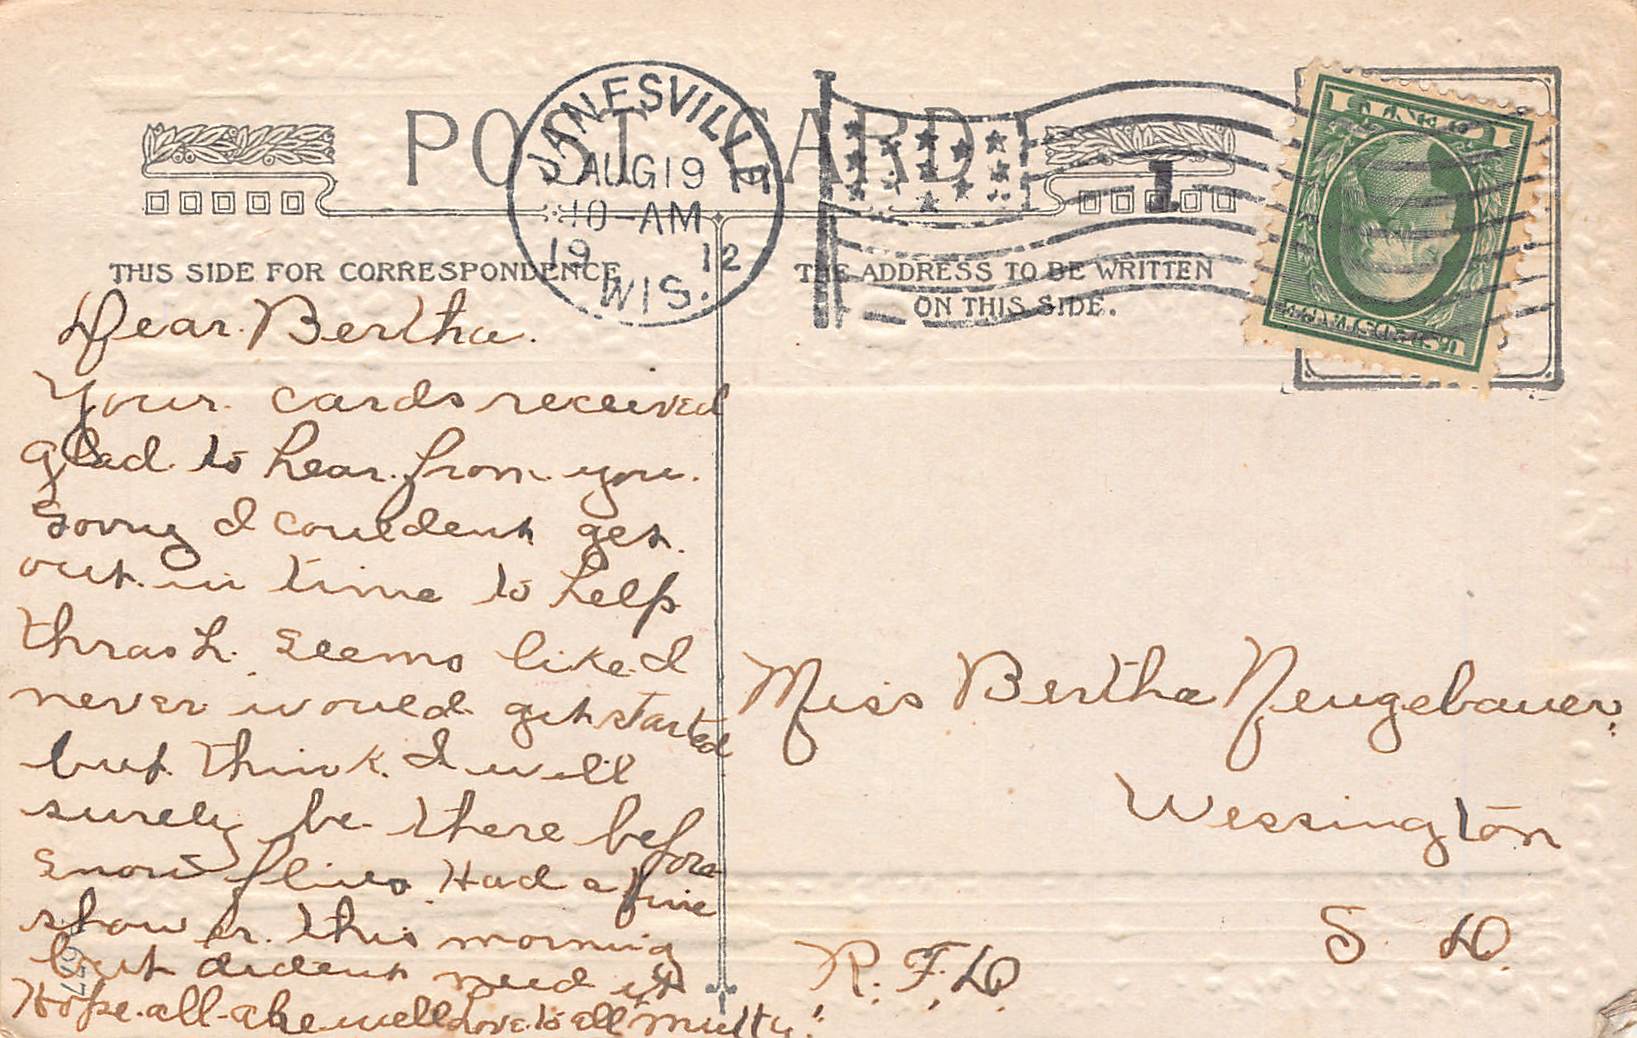 POST CARD
JANESVILLE
AUG 19
10-AM
19 12
WIS.
1
THIS SIDE FOR CORRESPONDENCE
THE ADDRESS TO BE WRITTEN
ON THIS SIDE.
Dear Bertha.
Your cards received
glad to hear from you.
Sorry I couldent get
out in time to help
thrash. Seems like I
never would get started
but think I will
surely be there before
snow flies Had a fine
shower this morning
but dident need it
Hope all are well Love to all Mutty
Miss Bertha Neugebauer
Wessington
S. D.
R. F. D